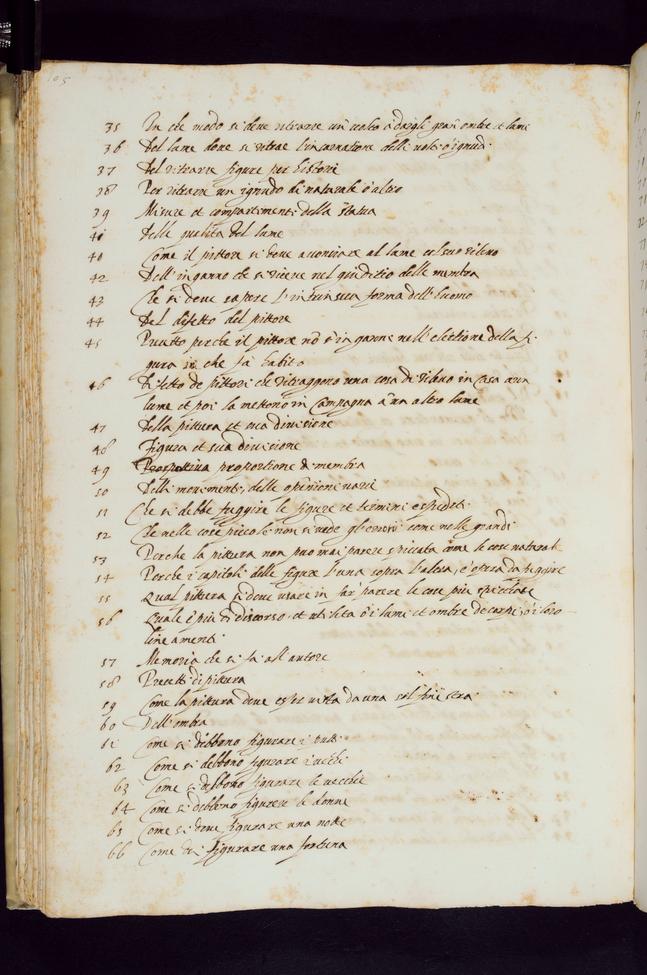 105
35 In che modo si deve ritrarre un volto é dargli gratia ombre et lume
36 Del lume dove si ritrae l'incarnatione delli volti ó ignudi.
37 Del ritrarre figure per historie
38 Per ritrarre un ignudo di naturale ó altro
39 Misure et compartimenti della statua
41 Delle qualità del lume
40 Come il pittore si deve acconciare al lume col suo rilievo
42 Dell' inganno che si riceve nel giuditio delle membra
43 Che si deve sapere l'intrinseca forma dell' huomo
44 Del difetto del pittore
45 Precetto perche il pittore nõ s'inganni nell' elettione della fi-
gura in che fà habito
46 Difetto de pittori che ritraggono una cosa di rilievo in casa a un
lume et poi la mettono in Campagna a un altro lume
47 Della pittura et sua divisione
48 Figura et sua divisione
49 proportione di membra
50 Delli movimenti, delle opinioni varie
51 Che si debbe fuggire le figure et termini espediti.
52 Che nelle cose piccole non si vede gl'errori come nelle grandi
53 Perche la pittura non puo mai parere spiccata come le cose naturali
54 Perche i capitoli delle figure l'una sopra l'altra, è opera da fuggire
55 Qual pittura si deve usare in far parere le cose piu spiccate
56 Quale è piu di discorso, et utilità ó i lumi et ombre de corpi, ó i loro
lineamenti.
57 Memoria che si fà all' autore
58 Precetti di pittura
59 Come la pittura deve esser vista da una sol finestra
60 Dell' ombra
61 Come si debbono figurare i putti
62 Come si debbono figurare i vecchi
63 Come si debbono figurare le vecchie
64 Come si debbono figurare le donne
65 Come si deve figurare una notte
66 Come di figurare una fortuna